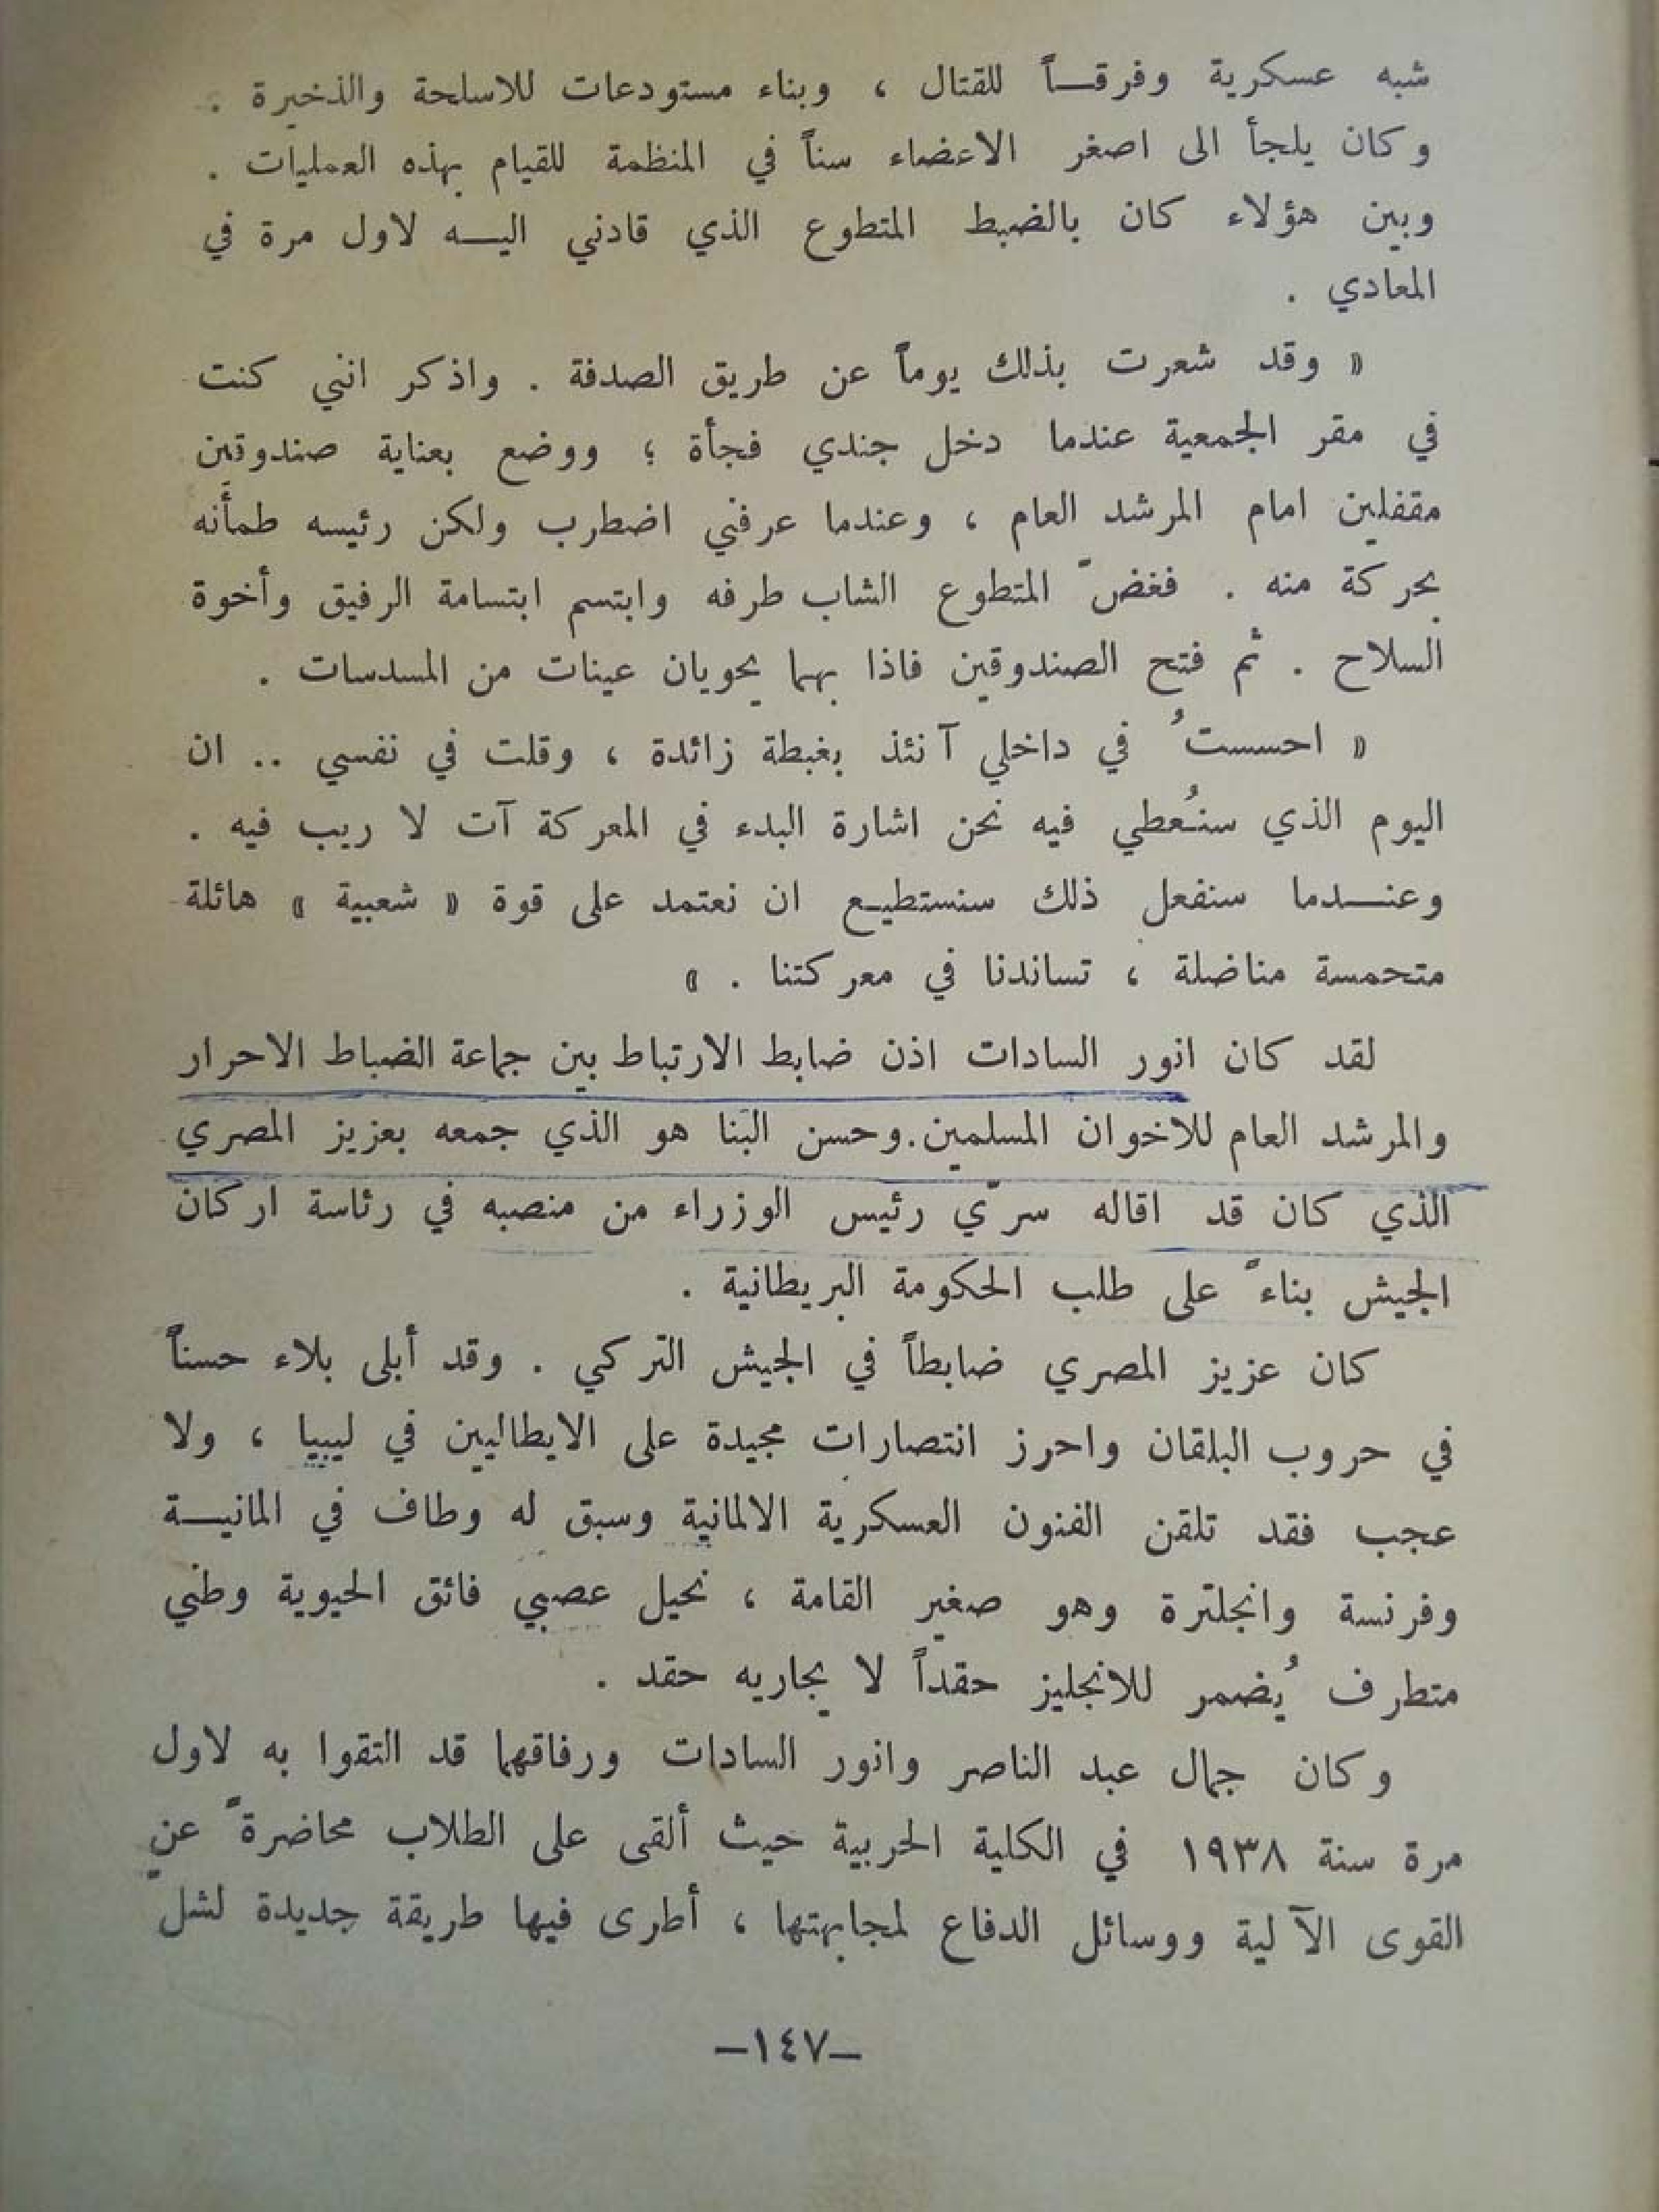 شبه عسكرية وفرقـــاً للقتال ، وبناء مستودعات للاسلحة والذخيرة .
وكان يلجأ الى اصغر الاعضاء سناً في المنظمة للقيام بهذه العمليات .
وبين هؤلاء كان بالضبط المتطوع الذي قادني اليـــه لاول مرة في
المعادي .
« وقد شعرت بذلك يوماً عن طريق الصدفة . واذكر انني كنت
في مقر الجمعية عندما دخل جندي فجأة ؛ ووضع بعناية صندوقين
مقفلين امام المرشد العام ، وعندما عرفني اضطرب ولكن رئيسه طمأَنه
بحركة منه . فغضّ المتطوع الشاب طرفه وابتسم ابتسامة الرفيق وأخوة
السلاح . ثم فتح الصندوقين فاذا بهما يحويان عينات من المسدسات .
« احسستُ في داخلي آنئذ بغبطة زائدة ، وقلت في نفسي .. ان
اليوم الذي سنُعطي فيه نحن اشارة البدء في المعركة آت لا ريب فيه .
وعنـــدما سنفعل ذلك سنستطيـع ان نعتمد على قوة « شعبية » هائلة
متحمسة مناضلة ، تساندنا في معركتنا . »
لقد كان انور السادات اذن ضابط الارتباط بين جماعة الضباط الاحرار
والمرشد العام للاخوان المسلمين.وحسن البَنا هو الذي جمعه بعزيز المصري
الذي كان قد اقاله سرّي رئيس الوزراء من منصبه في رئاسة اركان
الجيش بناءً على طلب الحكومة البريطانية .
كان عزيز المصري ضابطاً في الجيش التركي . وقد أبلى بلاء حسناً
في حروب البلقان واحرز انتصارات مجيدة على الايطاليين في ليبيا ، ولا
عجب فقد تلقن الفنون العسكرية الالمانية وسبق له وطاف في المانيـــة
وفرنسة وانجلترة وهو صغير القامة ، نحيل عصبي فائق الحيوية وطني
متطرف يُضمر للانجليز حقداً لا يجاريه حقد .
وكان جمال عبد الناصر وانور السادات ورفاقهما قد التقوا به لاول
مرة سنة ١٩٣٨ في الكلية الحربية حيث ألقى على الطلاب محاضرةً عن
القوى الآلية ووسائل الدفاع لمجابهتها ، أطرى فيها طريقة جديدة لشلّ
–١٤٧–